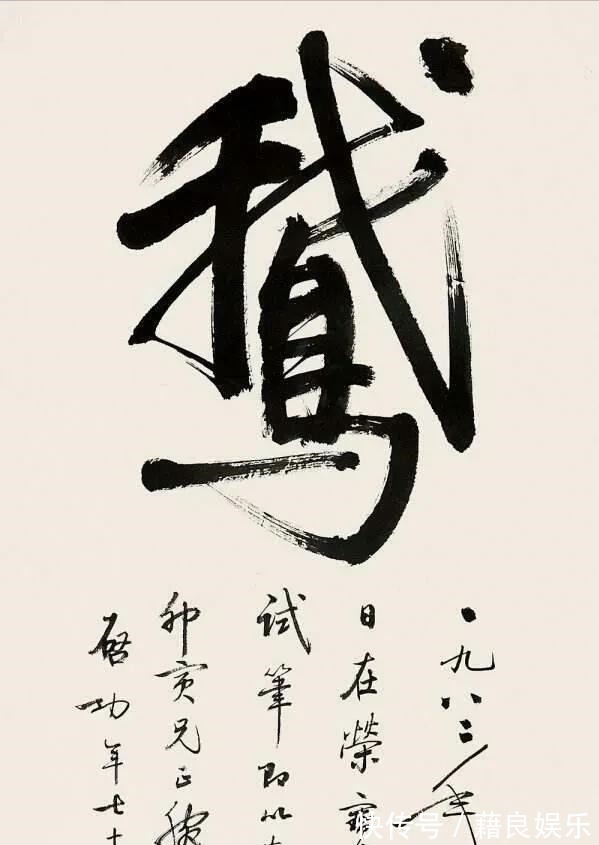 鵞
一九八二年
日在榮寶
試筆即以
兄正
啓功年七十
快传号 / 藉良娱乐